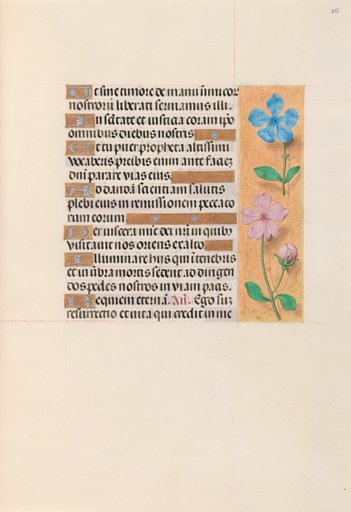 Ut sine timore de manu inimicor
nostrorū liberati seruiamus illi.
In sc̄itate et iusticia coram ip̄o
omnibus diebus nostris
Et tu puer propheta altissimi
vocaberis preibis enim ante faciē
dn̄i parare vias eius.
Ad dandā scientiam salutis
plebi eius in remissionem peccato
rum eorum
Per viscera mīe dei nr̄i in quib
visitauit nos oriens ex alto
Illuminare hijs qui ī tenebris
et in vmbra mortis sedent ad dirigen
dos pedes nostros in viam pacis.
Requiem eternā. An̄. Ego suz
resurrectio et vita qui credit in me